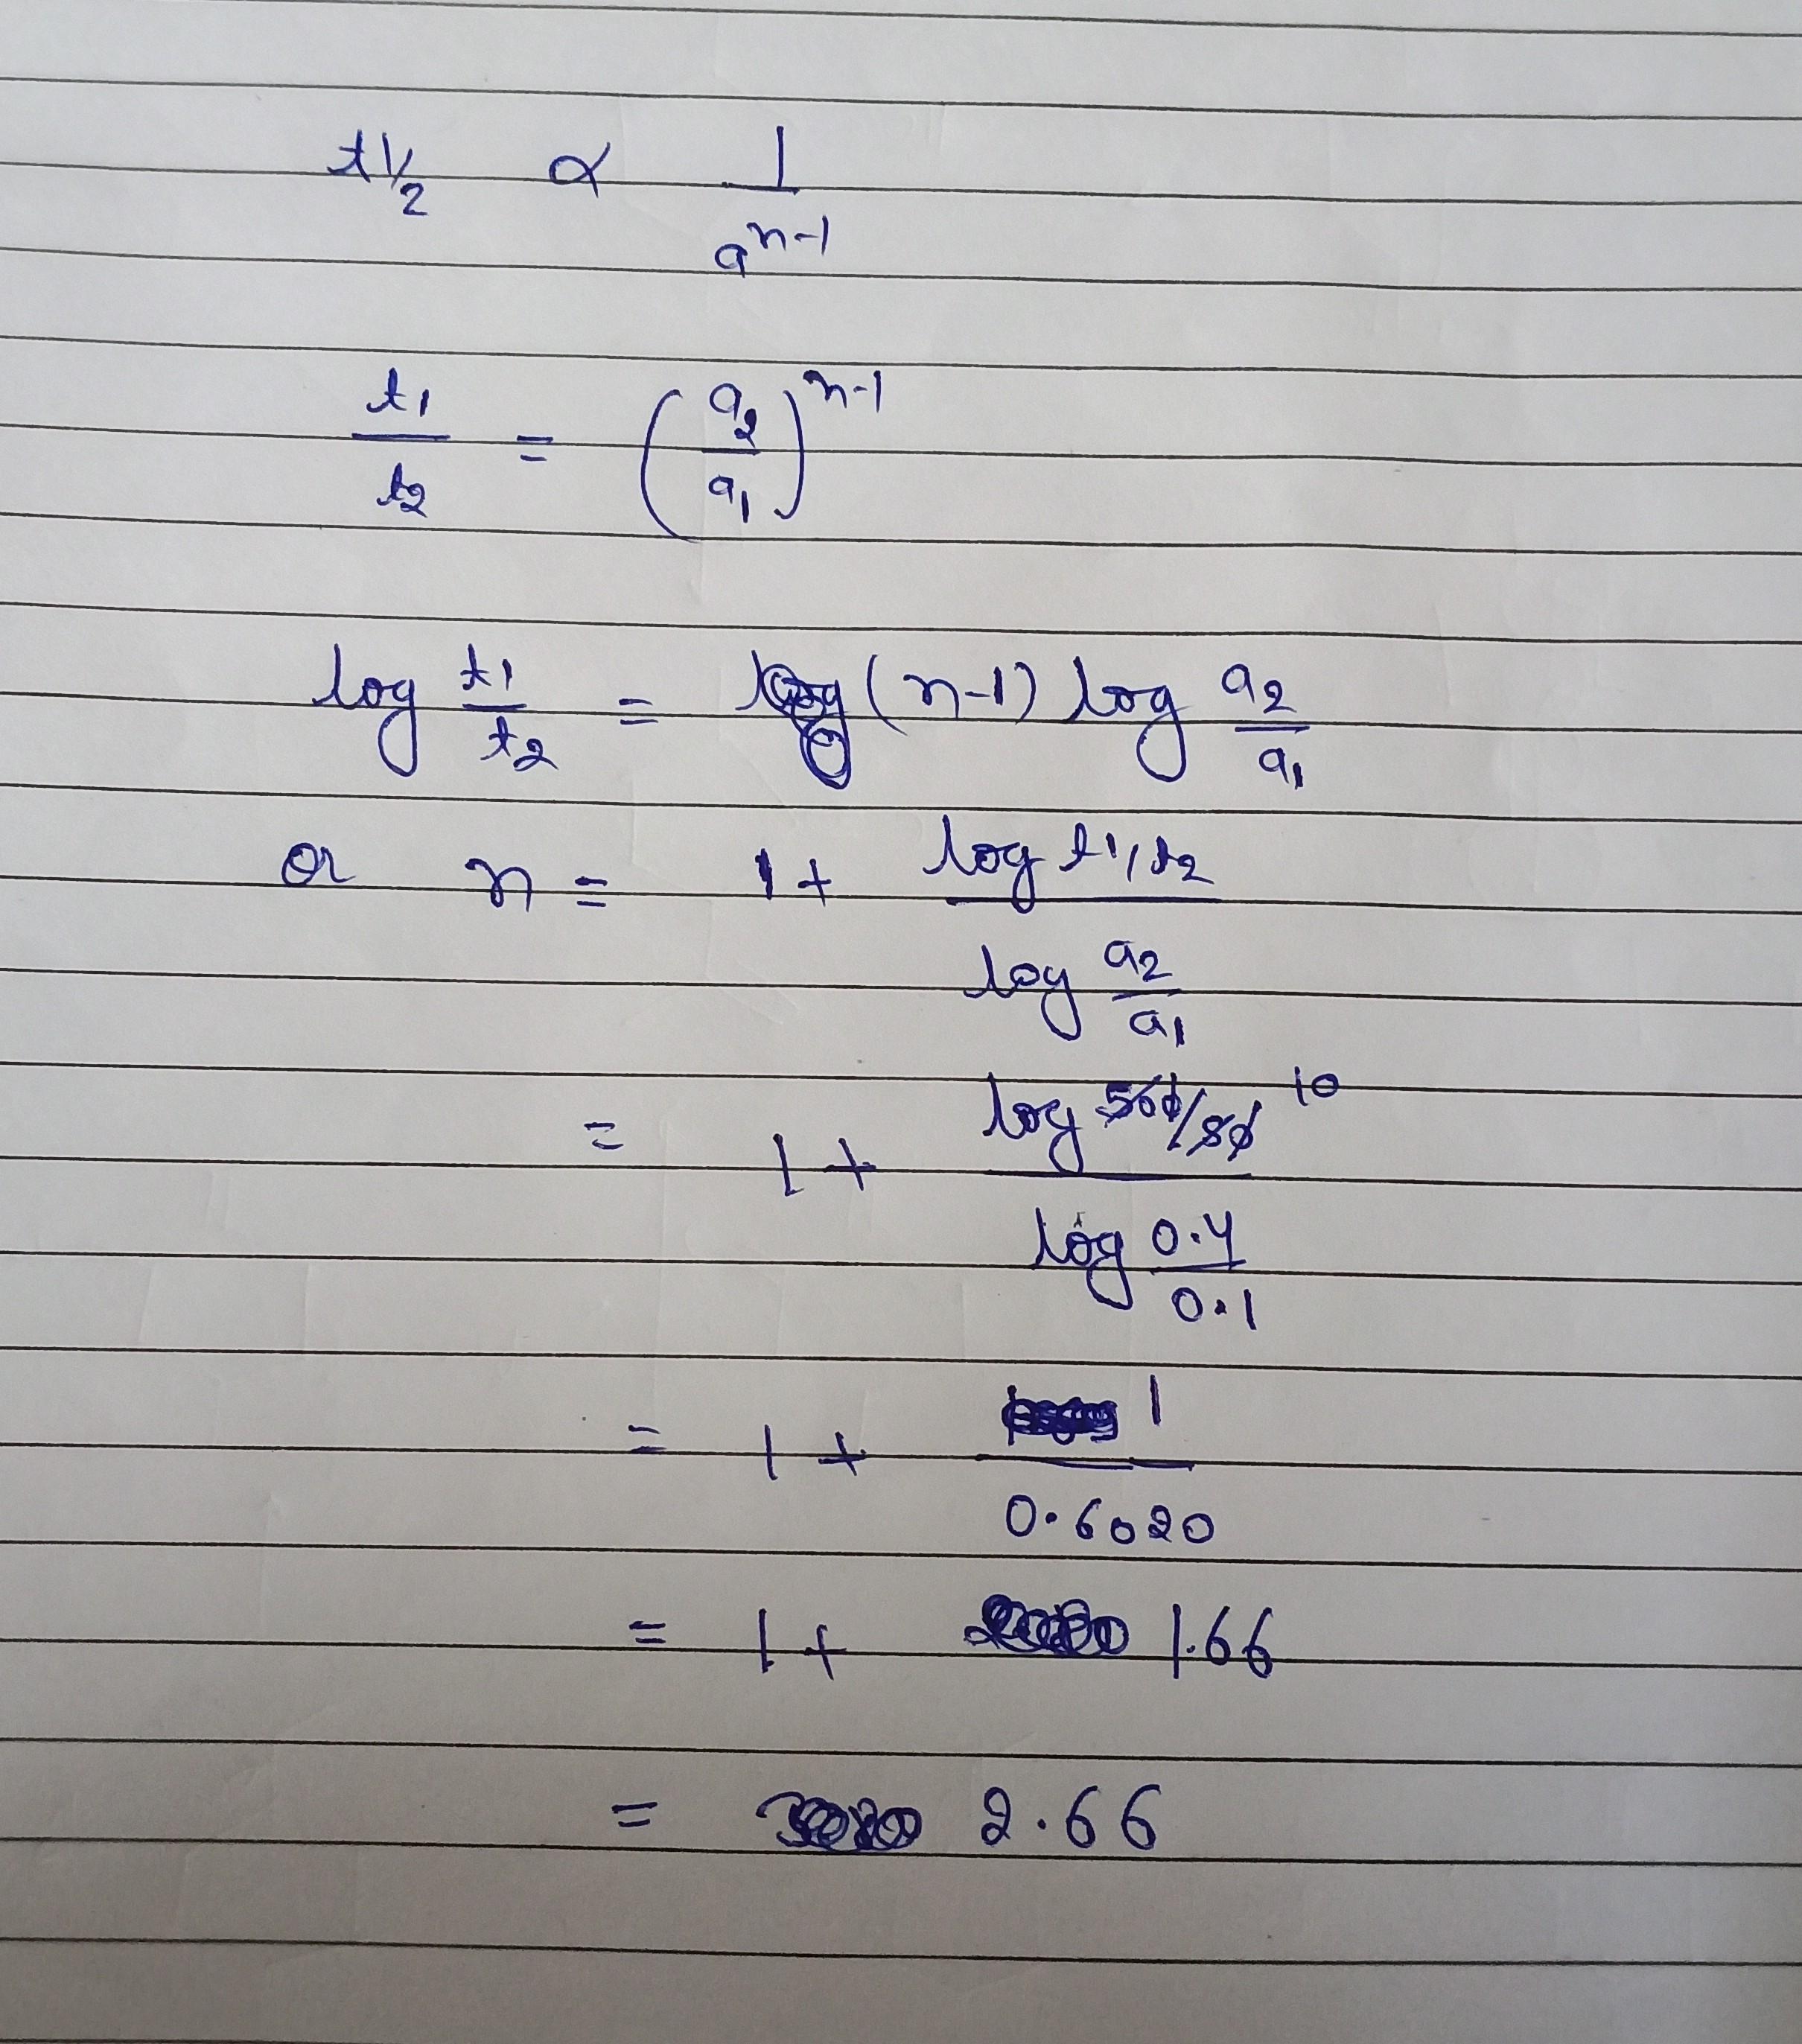 t1/2 ∝ 1/a^(n-1)
t1/t2 = (a2/a1)^(n-1)
log t1/t2 = (n-1) log a2/a1
or n = 1 + (log t1/t2)/(log a2/a1)
= 1 + (log 500/50 10)/(log 0.4/0.1)
= 1 + 1/0.6020
= 1 + 1.66
= 2.66